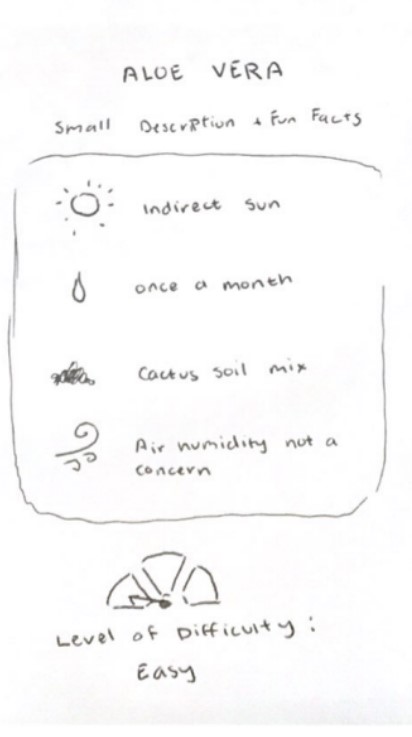 ALOE VERA
Small Description + Fun Facts
Indirect sun
once a month
Cactus soil mix
Air humidity not a
concern
Level of Difficulty:
Easy